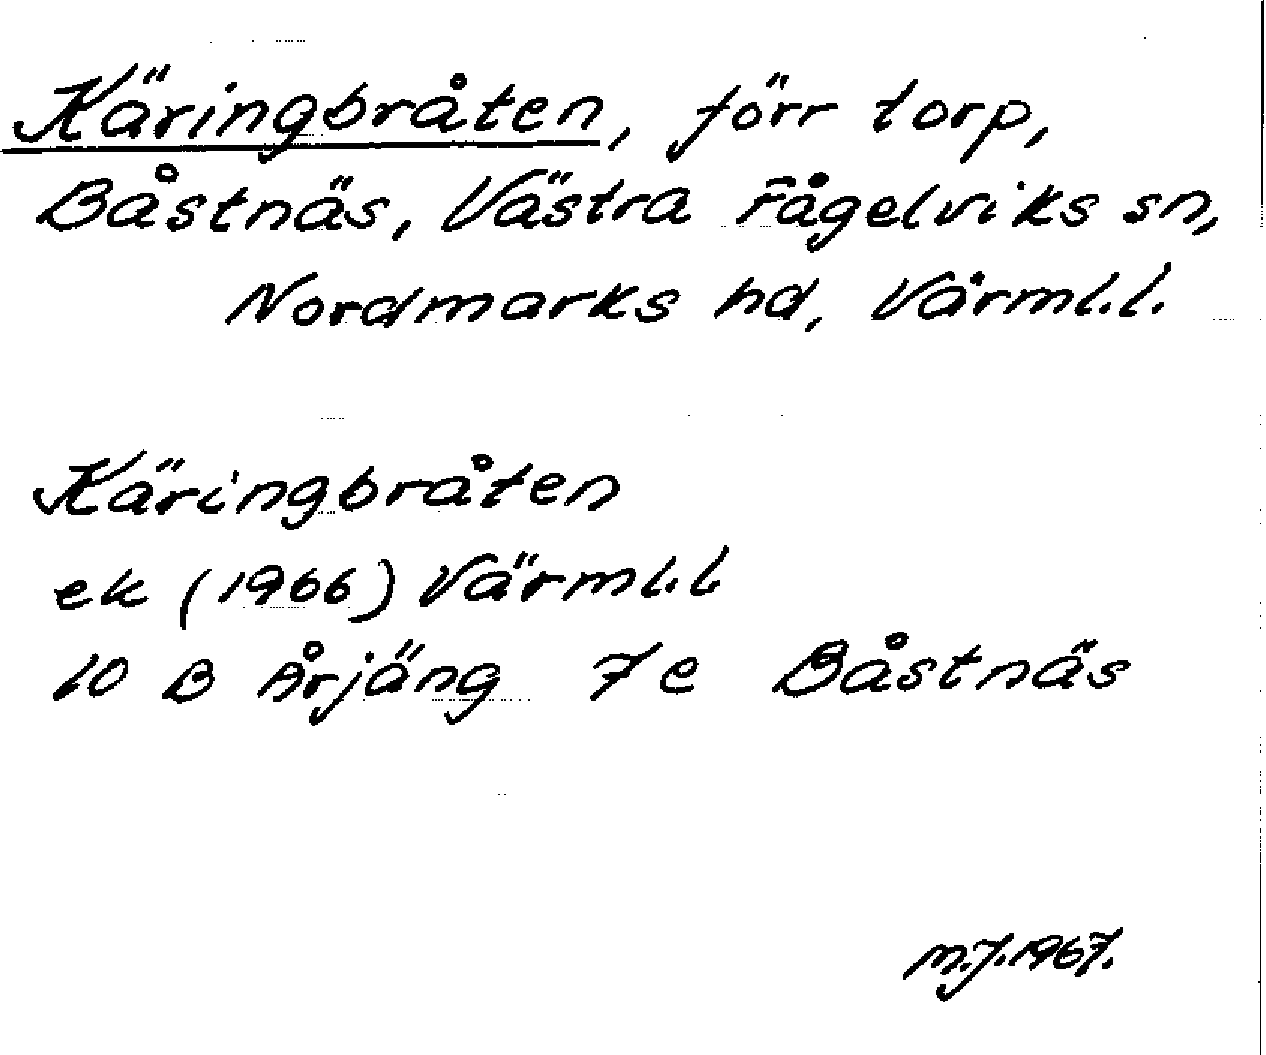 Käringbråten, förr torp,
Båstnäs, Västra Fågelviks sn,
Nordmarks hd, Värml.l.
Käringbråten
ek (1966) Värml.l.
10 B Årjäng 7e Båstnäs
M.J.1967.